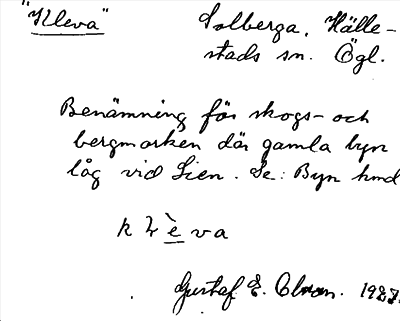 "Kleva" Solberga, Hälle-
stads sn. Ögl.
Benämning för skogs- och
bergmarken där gamla byn
låg vid Sien. Se: Byn hmd
k l è v a
Gustaf E. Olson. 1927.